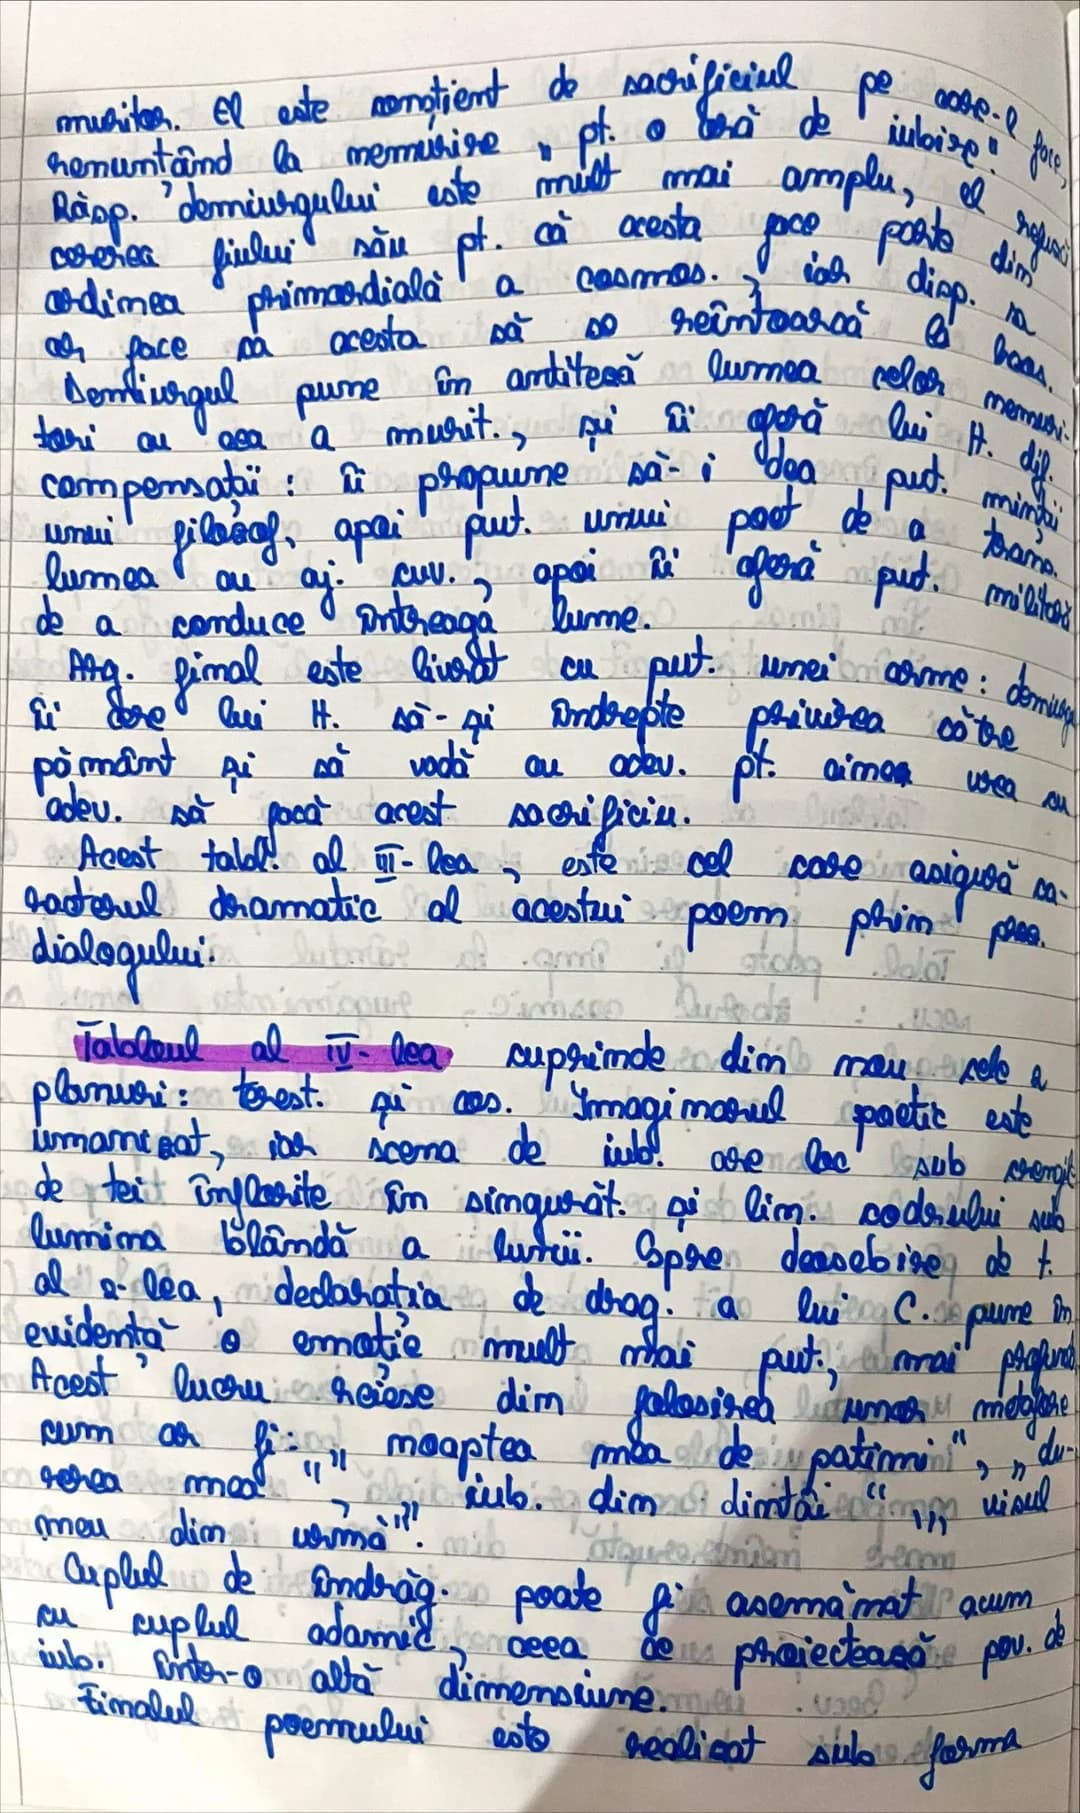 muritor. El este conștient de sacrificiul pe care-l face,
renunțând la nemurire „pt. o oră de iubire".
Răsp. demiurgului este mult mai amplu, el refuză
cererea fiului său pt. că acesta face parte din
ordinea primordială a cosmos., iar disp. sa
ar face ca acesta să se reîntoarcă la haos.
Demiurgul pune în antiteză lumea celor nemuri-
tori cu cea a murit., și îi oferă lui H. dif.
compensații: îi propune să-i dea put. minții
unui filosof, apoi put. unui poet de a trans.
lumea cu aj. cuv., apoi îi oferă put. militară
de a conduce întreaga lume.
Arg. final este livrat cu put. unei arme: demiurgul
îi cere lui H. să-și îndrepte privirea către
pământ și să vadă cu adev. pt. cinea vrea cu
adev. să facă acest sacrificiu.
Acest tabl. al III-lea, este cel care asigură ca-
racterul dramatic al acestui poem prin prez.
dialogului.
Tabloul al IV-lea cuprinde din nou cele 2
planuri: terest. și cos. Imaginarul poetic este
umanizat, iar scena de iub. are loc sub crengile
de tei înflorite în singurăt. și lin. codrului sub
lumina blândă a lunii. Spre deosebire de t.
al 2-lea, declarația de drag. a lui C. pune în
evidență o emoție mult mai put., mai profundă
Acest lucru reiese din folosirea unor metafore
cum ar fi: „noaptea mea de patimi", „du-
rerea mea", „iub. din dintâi", „visul
meu din urmă".
Cuplul de îndrăg. poate fi asemănat acum
cu cuplul adamic, ceea ce proiectează pov. de
iub. într-o altă dimensiune.
Finalul poemului este realizat sub forma